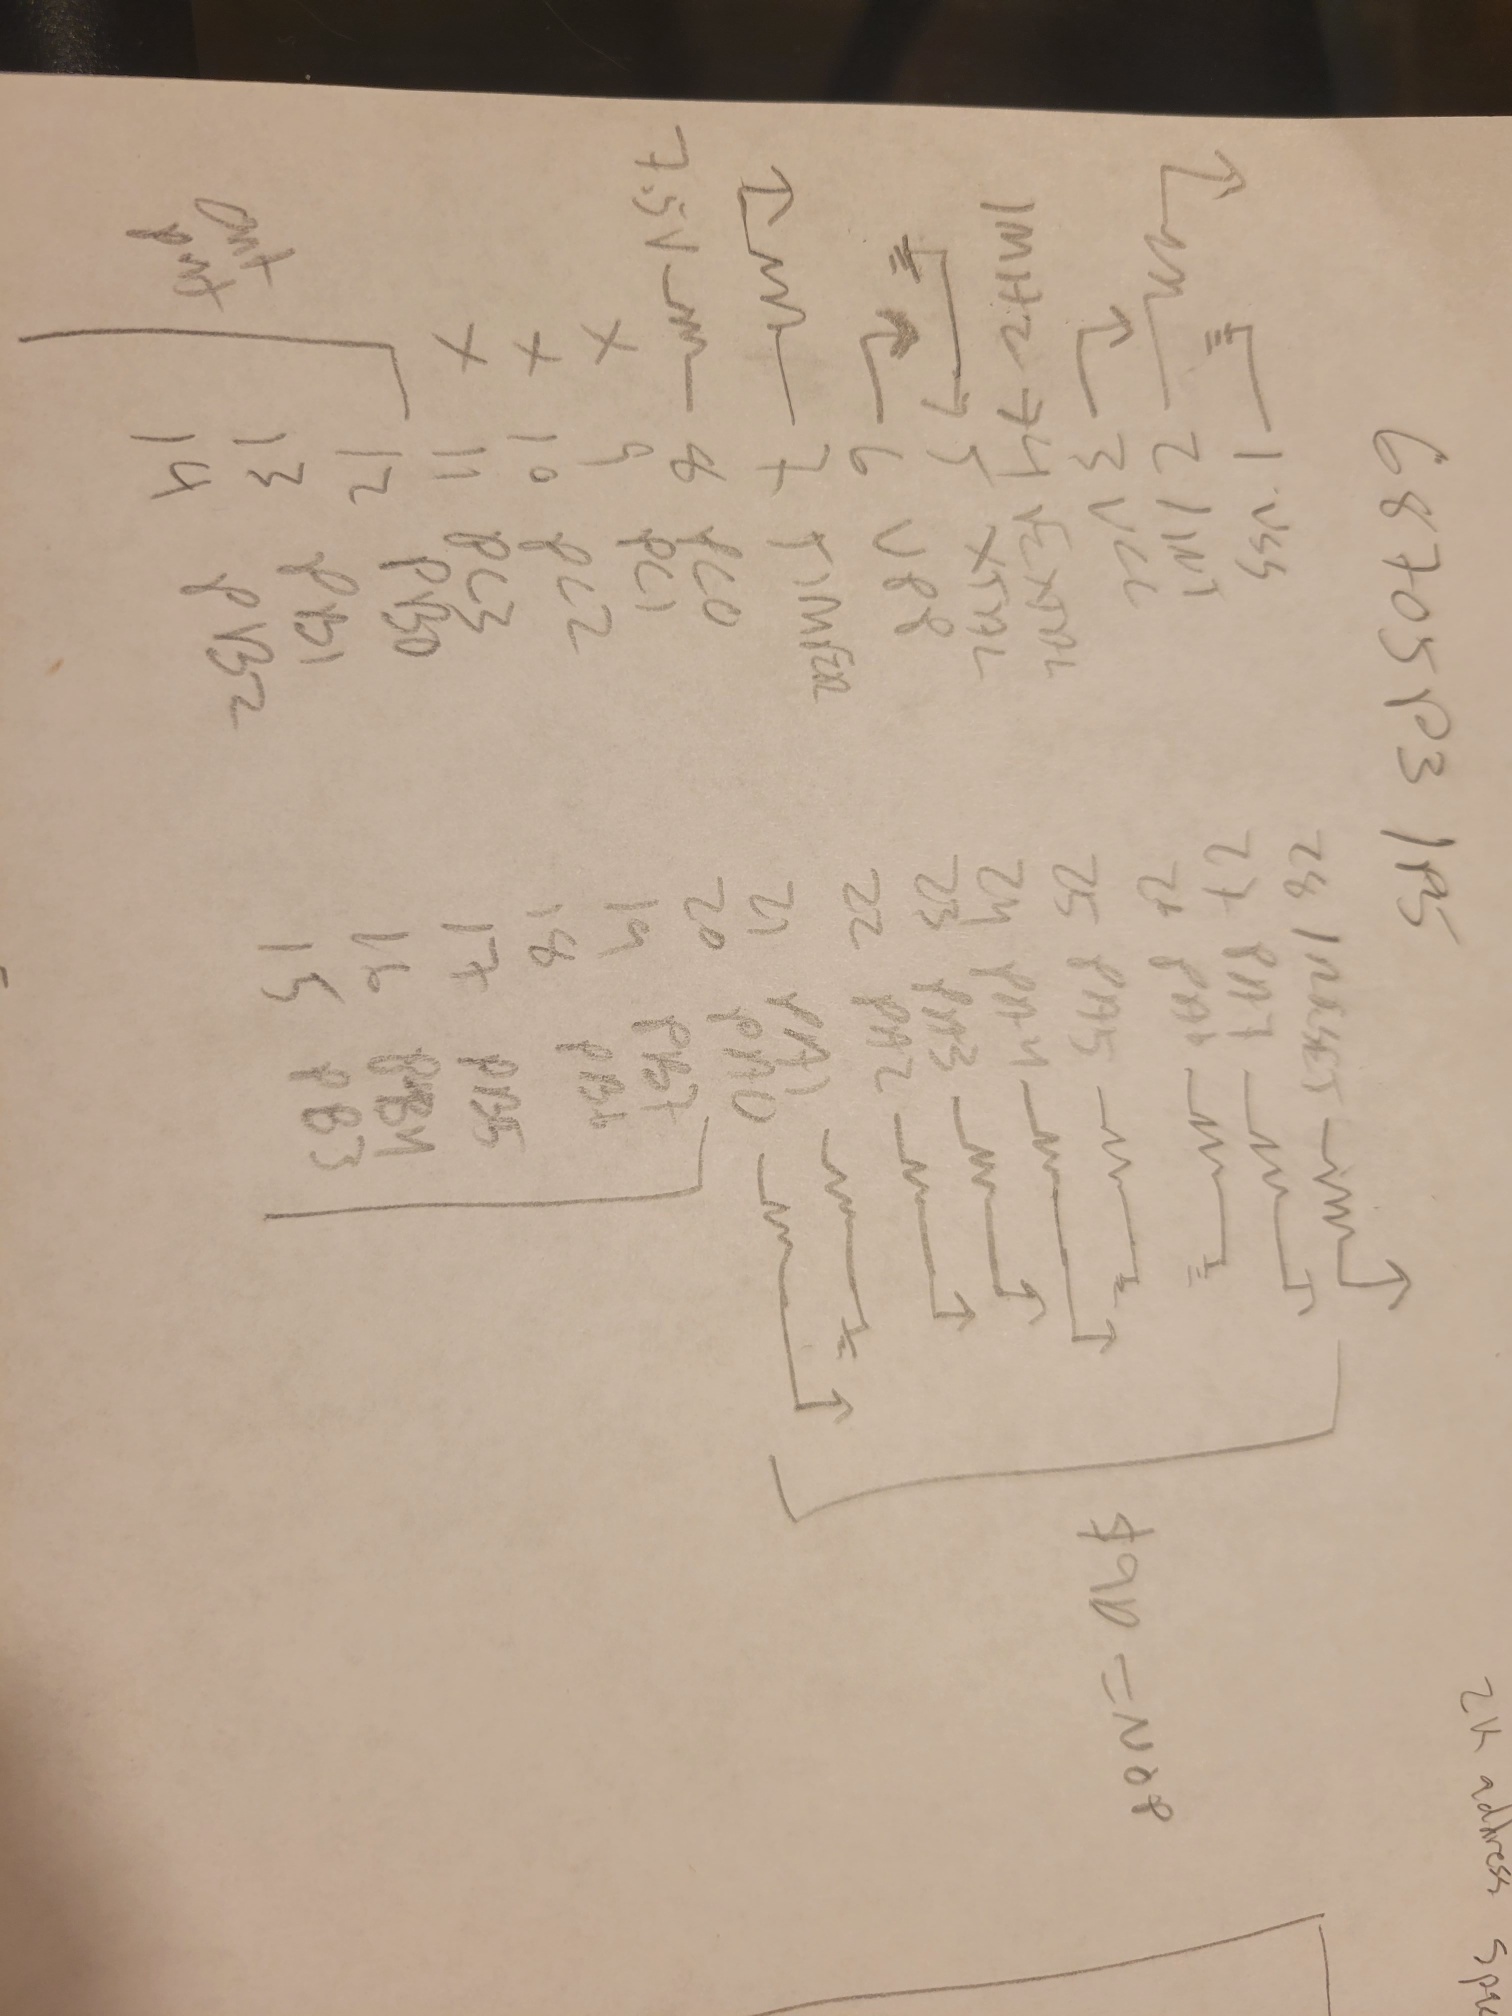 68705P3 1PS
2K address
1 VSS
2 INT
3 VCC
1MHz 4 EXTAL
5 XTAL
6 VPP
7 TIMER
7.5V 8 PC0
X 9 PC1
X 10 PC2
X 11 PC3
12 PB0
13 PB1
14 PB2
28 RESET
27 PA7
26 PA6
25 PA5
24 PA4
23 PA3
22 PA2
21 PA1
20 PA0
19 PB7
18 PB6
17 PB5
16 PB4
15 PB3
$9D = NOP